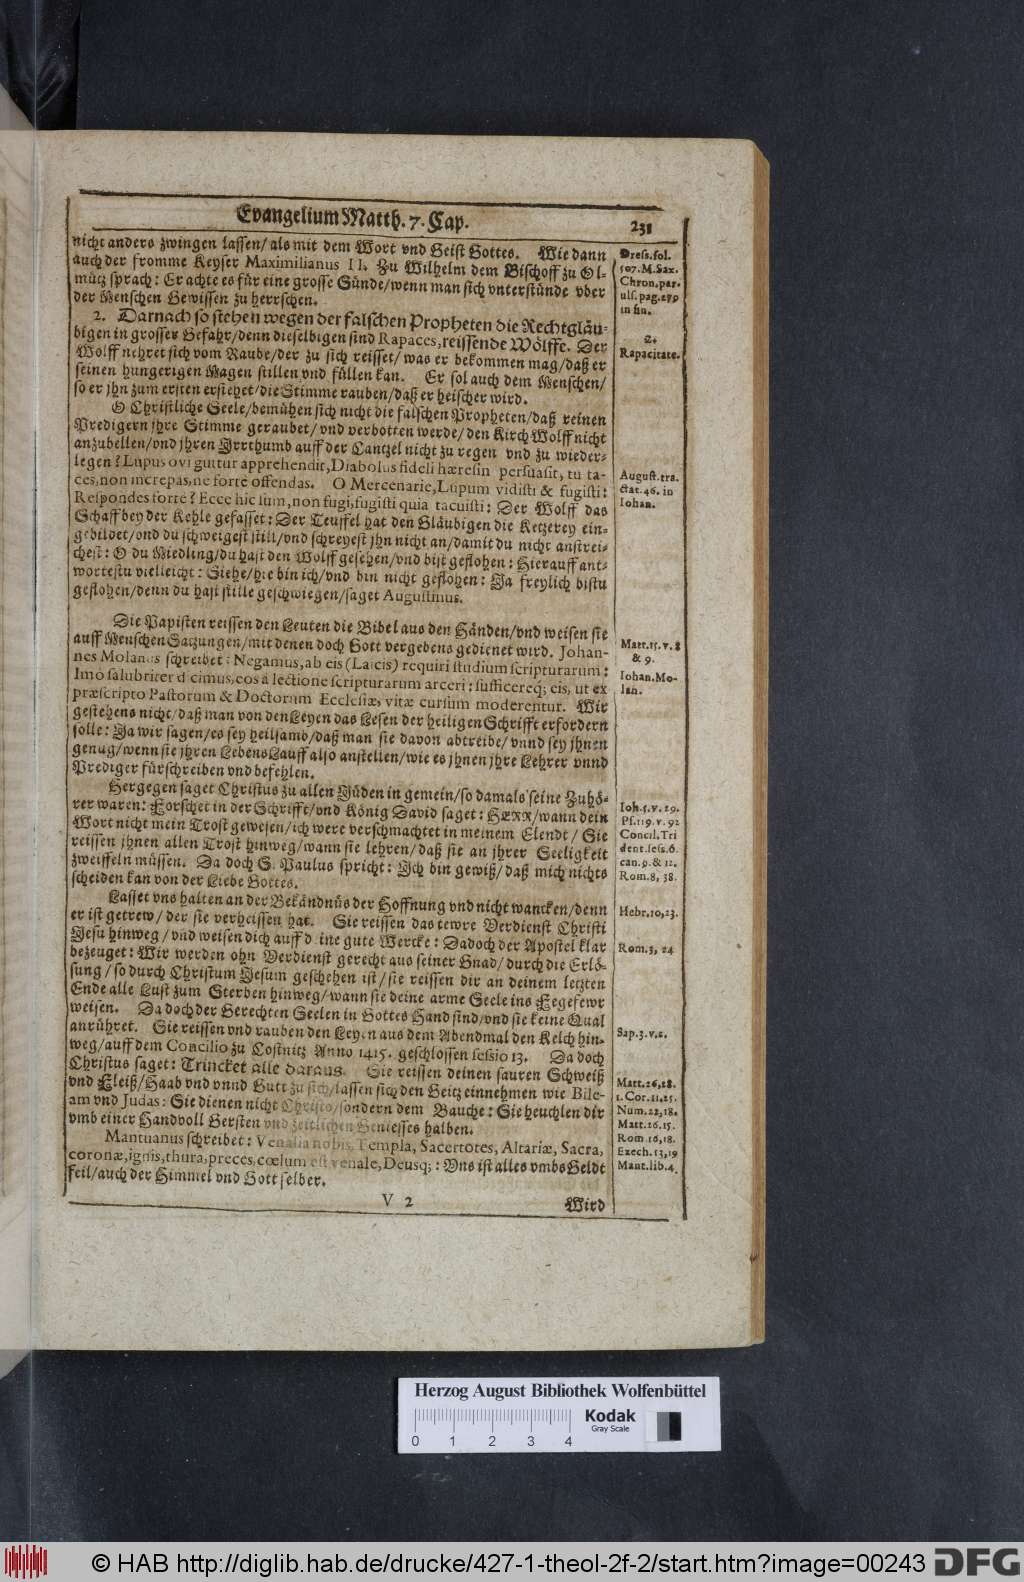 Evangelium Matth. 7. Cap. 231
nicht anders zwingen lassen/ als mit dem Wort vnd Geist Gottes. Wie dann
auch der fromme Keyser Maximilianus II. Zu Wilhelm dem Bischoff zu Ol-
mütz sprach: Er achte es für eine grosse Sünde/ wenn man sich vnterstünde vber
der Menschen Gewissen zu herrschen.
2. Darnach so stehen wegen der falschen Propheten die Rechtgläu-
bigen in grosser Gefahr/ denn dieselbigen sind Rapaces, reissende Wölffe. Der
Wolff nehret sich vom Raube/ der zu sich reisset/ was er bekommen mag/ daß er
seinen hungerigen Magen stillen vnd füllen kan. Er sol auch dem Menschen/
so er jhn zum ersten ersiehet/ die Stimme rauben/ daß er heischer wird.
O Christliche Seele/ bemühen sich nicht die falschen Propheten/ daß reinen
Predigern jhre Stimme geraubet/ vnd verbotten werde/ den Kirch Wolff nicht
anzubellen/ vnd jhren Irrthumb auff der Cantzel nicht zu regen vnd zu wieder-
legen? Lupus ovi guttur apprehendit, Diabolus fideli hæresin persuasit, tu ta-
ces, non increpas, ne fortè offendas. O Mercenarie, Lupum vidisti & fugisti:
Respondes fortè? Ecce hîc sum, non fugi, fugisti quia tacuisti: Der Wolff das
Schaff bey der Kehle gefasset: Der Teuffel hat den Gläubigen die Ketzerey ein-
gebildet/ vnd du schweigest still/ vnd schreyest jhn nicht an/ damit du nicht anstrei-
chest: O du Miedling/ du hast den Wolff gesehen/ vnd bist geflohen: Hierauff ant-
wortestu vielleicht: Siehe/ hie bin ich/ vnd bin nicht geflohen: Ja freylich bistu
geflohen/ denn du hast stille geschwiegen/ saget Augustinus.
Die Papisten reissen den Leuten die Bibel aus den Händen/ vnd weisen sie
auff Menschen Satzungen/ mit denen doch Gott vergebens gedienet wird. Johan-
nes Molanus schreibet: Negamus, ab eis (Laicis) requiri studium scripturarum:
Imò salubriter dicimus, eos à lectione scripturarum arceri: sufficereq; eis, ut ex
præscripto Pastorum & Doctorum Ecclesiæ, vitæ cursum moderentur. Wir
gestehens nicht/ daß man von den Leyen das Lesen der heiligen Schrifft erfordern
solle: Ja wir sagen/ es sey heilsamb/ daß man sie davon abtreibe/ vnnd sey jhnen
genug/ wenn sie jhren Lebens Lauff also anstellen/ wie es jhnen jhre Lehrer vnnd
Prediger fürschreiben vnd befehlen.
Hergegen saget Christus zu allen Jüden in gemein/ so damals seine Zuhö-
rer waren: Forschet in der Schrifft/ vnd König David saget: HERR/ wann dein
Wort nicht mein Trost gewesen/ ich were verschmachtet in meinem Elendt/ Sie
reissen jhnen allen Trost hinweg/ wann sie lehren/ daß sie an jhrer Seeligkeit
zweiffeln müssen. Da doch S. Paulus spricht: Ich bin gewiß/ daß mich nichts
scheiden kan von der Liebe Gottes.
Lasset vns halten an der Bekändnüs der Hoffnung vnd nicht wancken/ denn
er ist getrew/ der sie verheissen hat. Sie reissen das tewre Verdienst Christi
Jesu hinweg/ vnd weisen dich auff deine gute Wercke: Da doch der Apostel klar
bezeuget: Wir werden ohn Verdienst gerecht aus seiner Gnad/ durch die Erlö-
sung/ so durch Christum Jesum geschehen ist/ sie reissen dir an deinem letzten
Ende alle Lust zum Sterben hinweg/ wann sie deine arme Seele ins Fegefewr
weisen. Da doch der Gerechten Seelen in Gottes Hand sind/ vnd sie keine Qual
anrühret. Sie reissen vnd rauben den Leyen aus dem Abendmal den Kelch hin-
weg/ auff dem Concilio zu Costnitz Anno 1415. geschlossen sessio 13. Da doch
Christus saget: Trincket alle daraus. Sie reissen deinen sauren Schweiß
vnd Fleiß/ Haab vnd vnnd Gutt zu sich/ lassen sich den Geitz einnehmen wie Bile-
am vnd Judas: Sie dienen nicht Christo/ sondern dem Bauche: Sie heuchlen dir
vmb einer Handvoll Gersten vnd zeitlichen Geniesses halben.
Mantuanus schreibet: Venalia nobis, Templa, Sacerdotes, Altariæ, Sacra,
coronæ, ignis, thura, preces, cœlum est venale, Deusq;: Vns ist alles vmbs Geldt
feil/ auch der Himmel vnd Gott selber.
V 2 Wird
Dress. fol.
507. M. Sax.
Chron. par.
ulf. pag. 279
in fin.
2.
Rapacitate.
August. tra.
ctat. 46. in
Iohan.
Matt. 15. v. 8
& 9.
Iohan. Mo-
lan.
Ioh. 5. v. 29.
Ps. 119. v. 92
Concil. Tri
dent. sess. 6.
can. 9. & 12.
Rom. 8, 38.
Hebr. 10, 23.
Rom. 3, 24
Sap. 3. v. 1.
Matt. 26, 28.
1. Cor. 11. 25.
Num. 22, 18.
Matt. 26. 15.
Rom 16, 18.
Ezech. 13, 19
Mant. lib. 4.
Herzog August Bibliothek Wolfenbüttel
Kodak
Gray Scale
0 1 2 3 4
© HAB http://diglib.hab.de/drucke/427-1-theol-2f-2/start.htm?image=00243 DFG